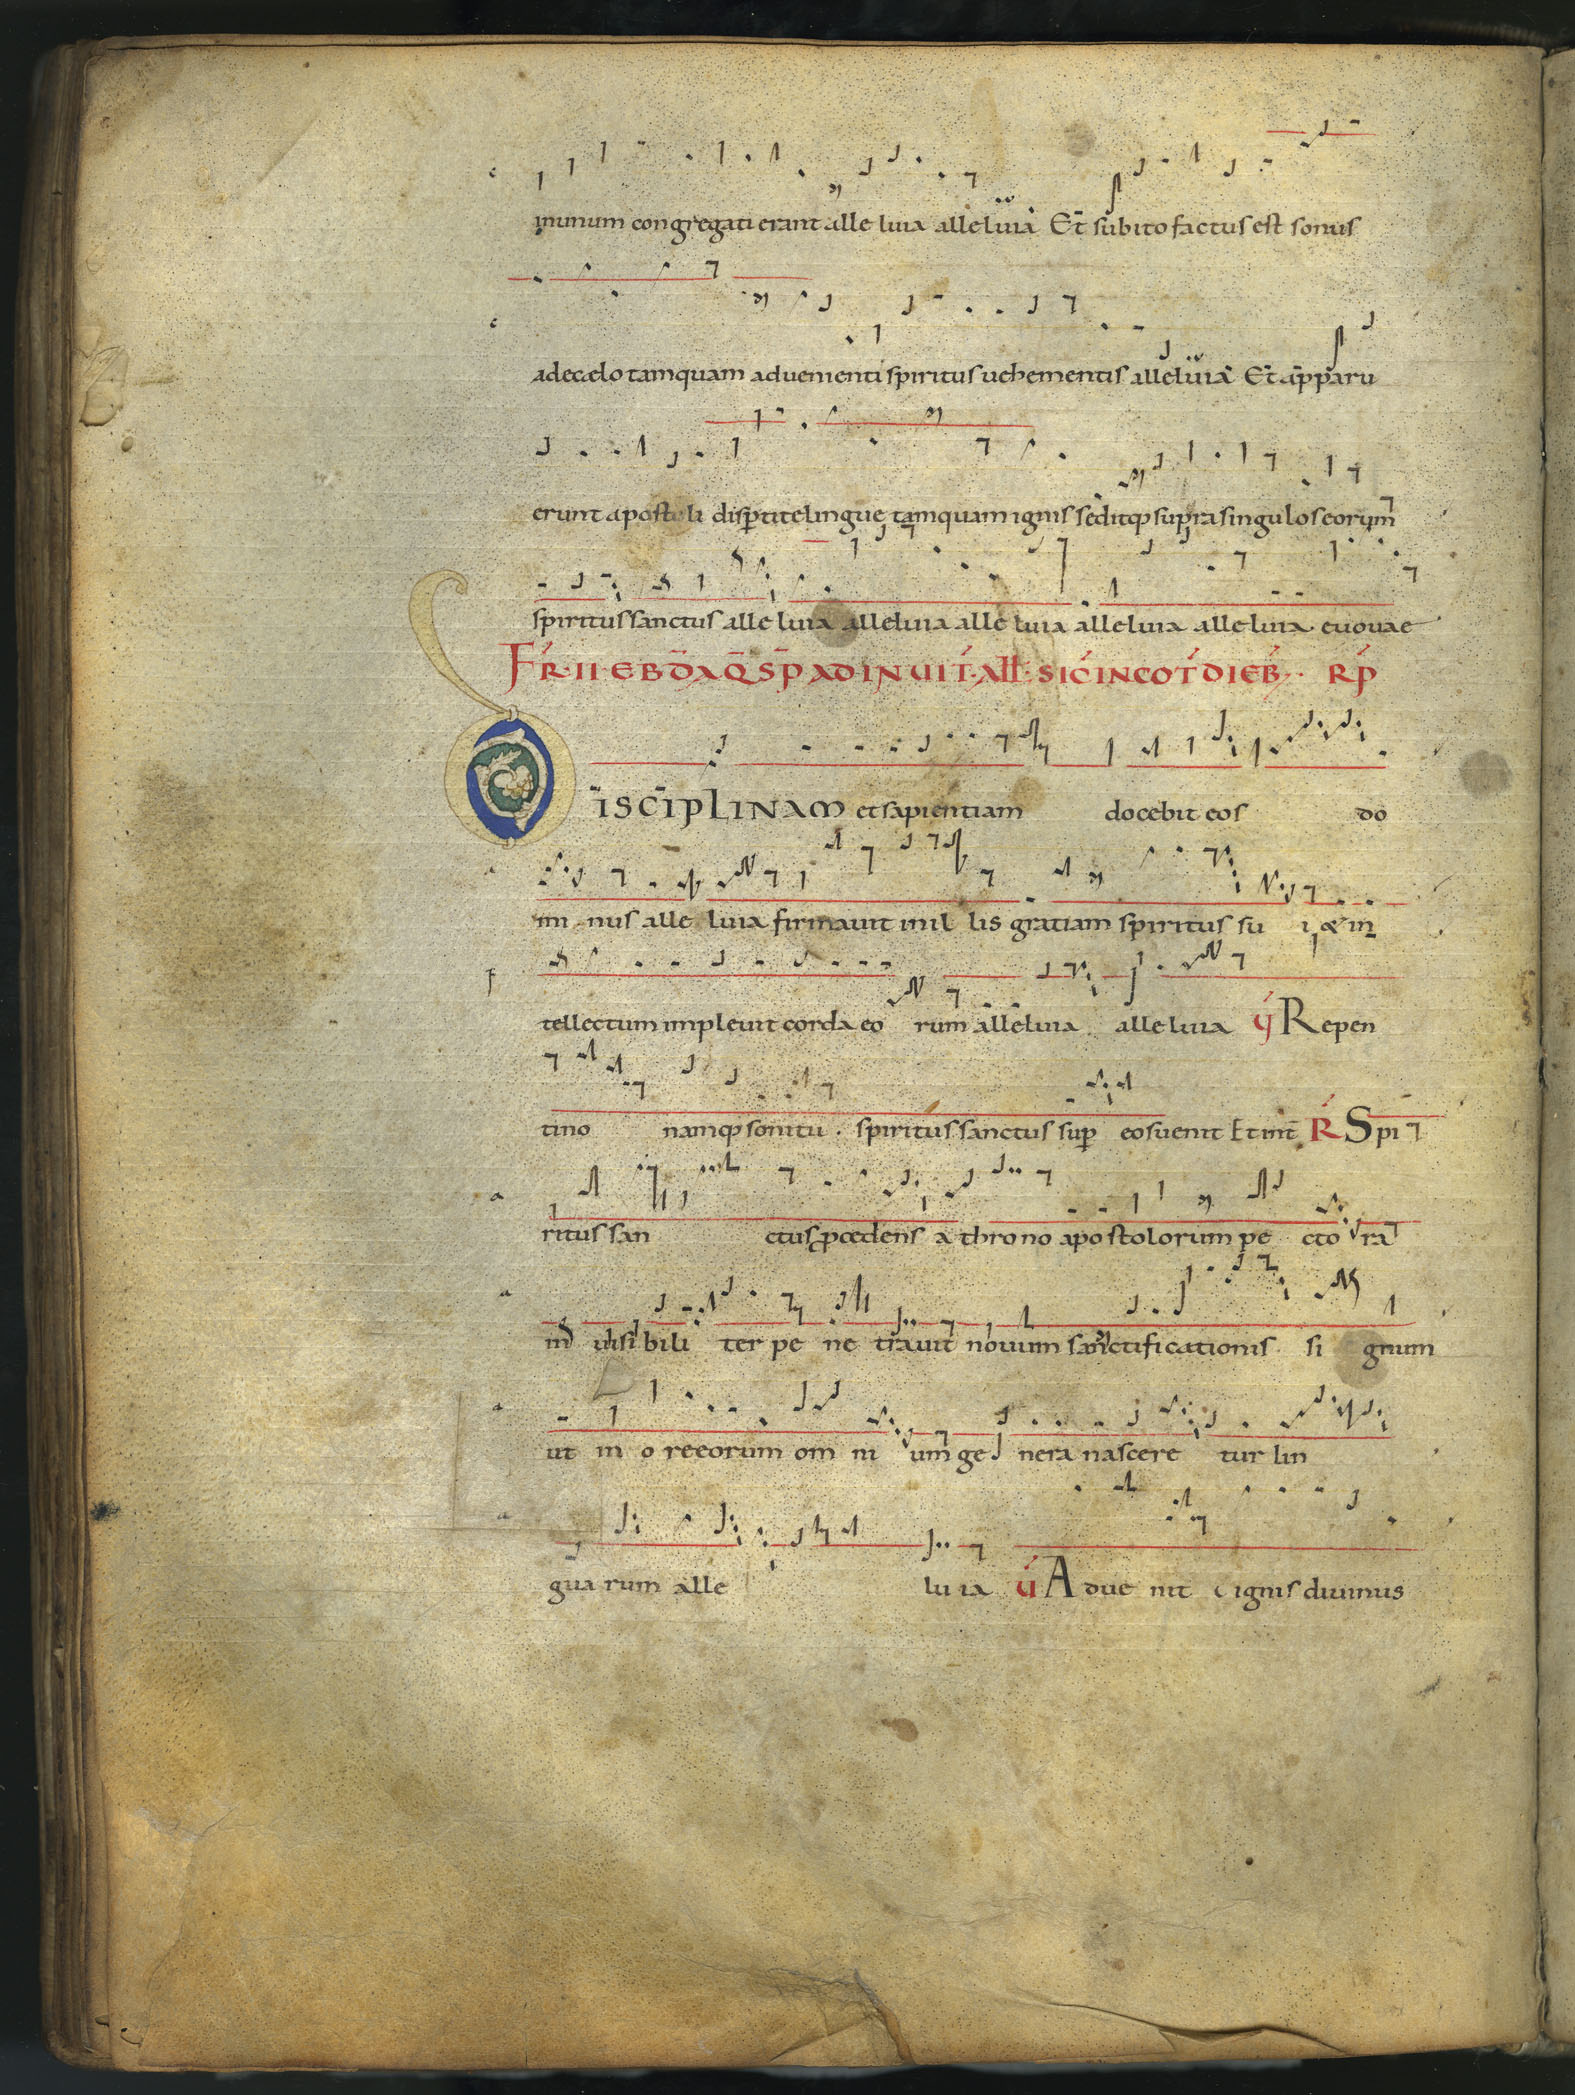 inunum congregati erant alle luia alleluia Et subito factus est sonus
adecælo tamquam aduenienti spiritus uehementis alleluia Et apparu
erunt apostoli disptite lingue tamquam ignis seditq supra singulos eorum
spiritus sanctus alle luia alleluia alle luia alleluia alleluia euouae
FR II EBDA Q SP AD INUIT All SIC IN COT DIEB RP
DISCIPLINAM et sapientiam docebit eos do
mi nus alle luia firmauit in il lis gratiam spiritus su i & in
tellectum impleuit corda eo rum alleluia alleluia V Repen
tino namq sonitu spiritus sanctus sup eos uenit Et int R Spi
ritus san ctus pcedens a throno apostolorum pe cto ra
inuisi bili ter pe ne trauit nouum sanctificationis si gnum
ut in o re eorum om ni um ge nera nascere tur lin
gua rum alle lu ia V Adue nit ignis diuinus